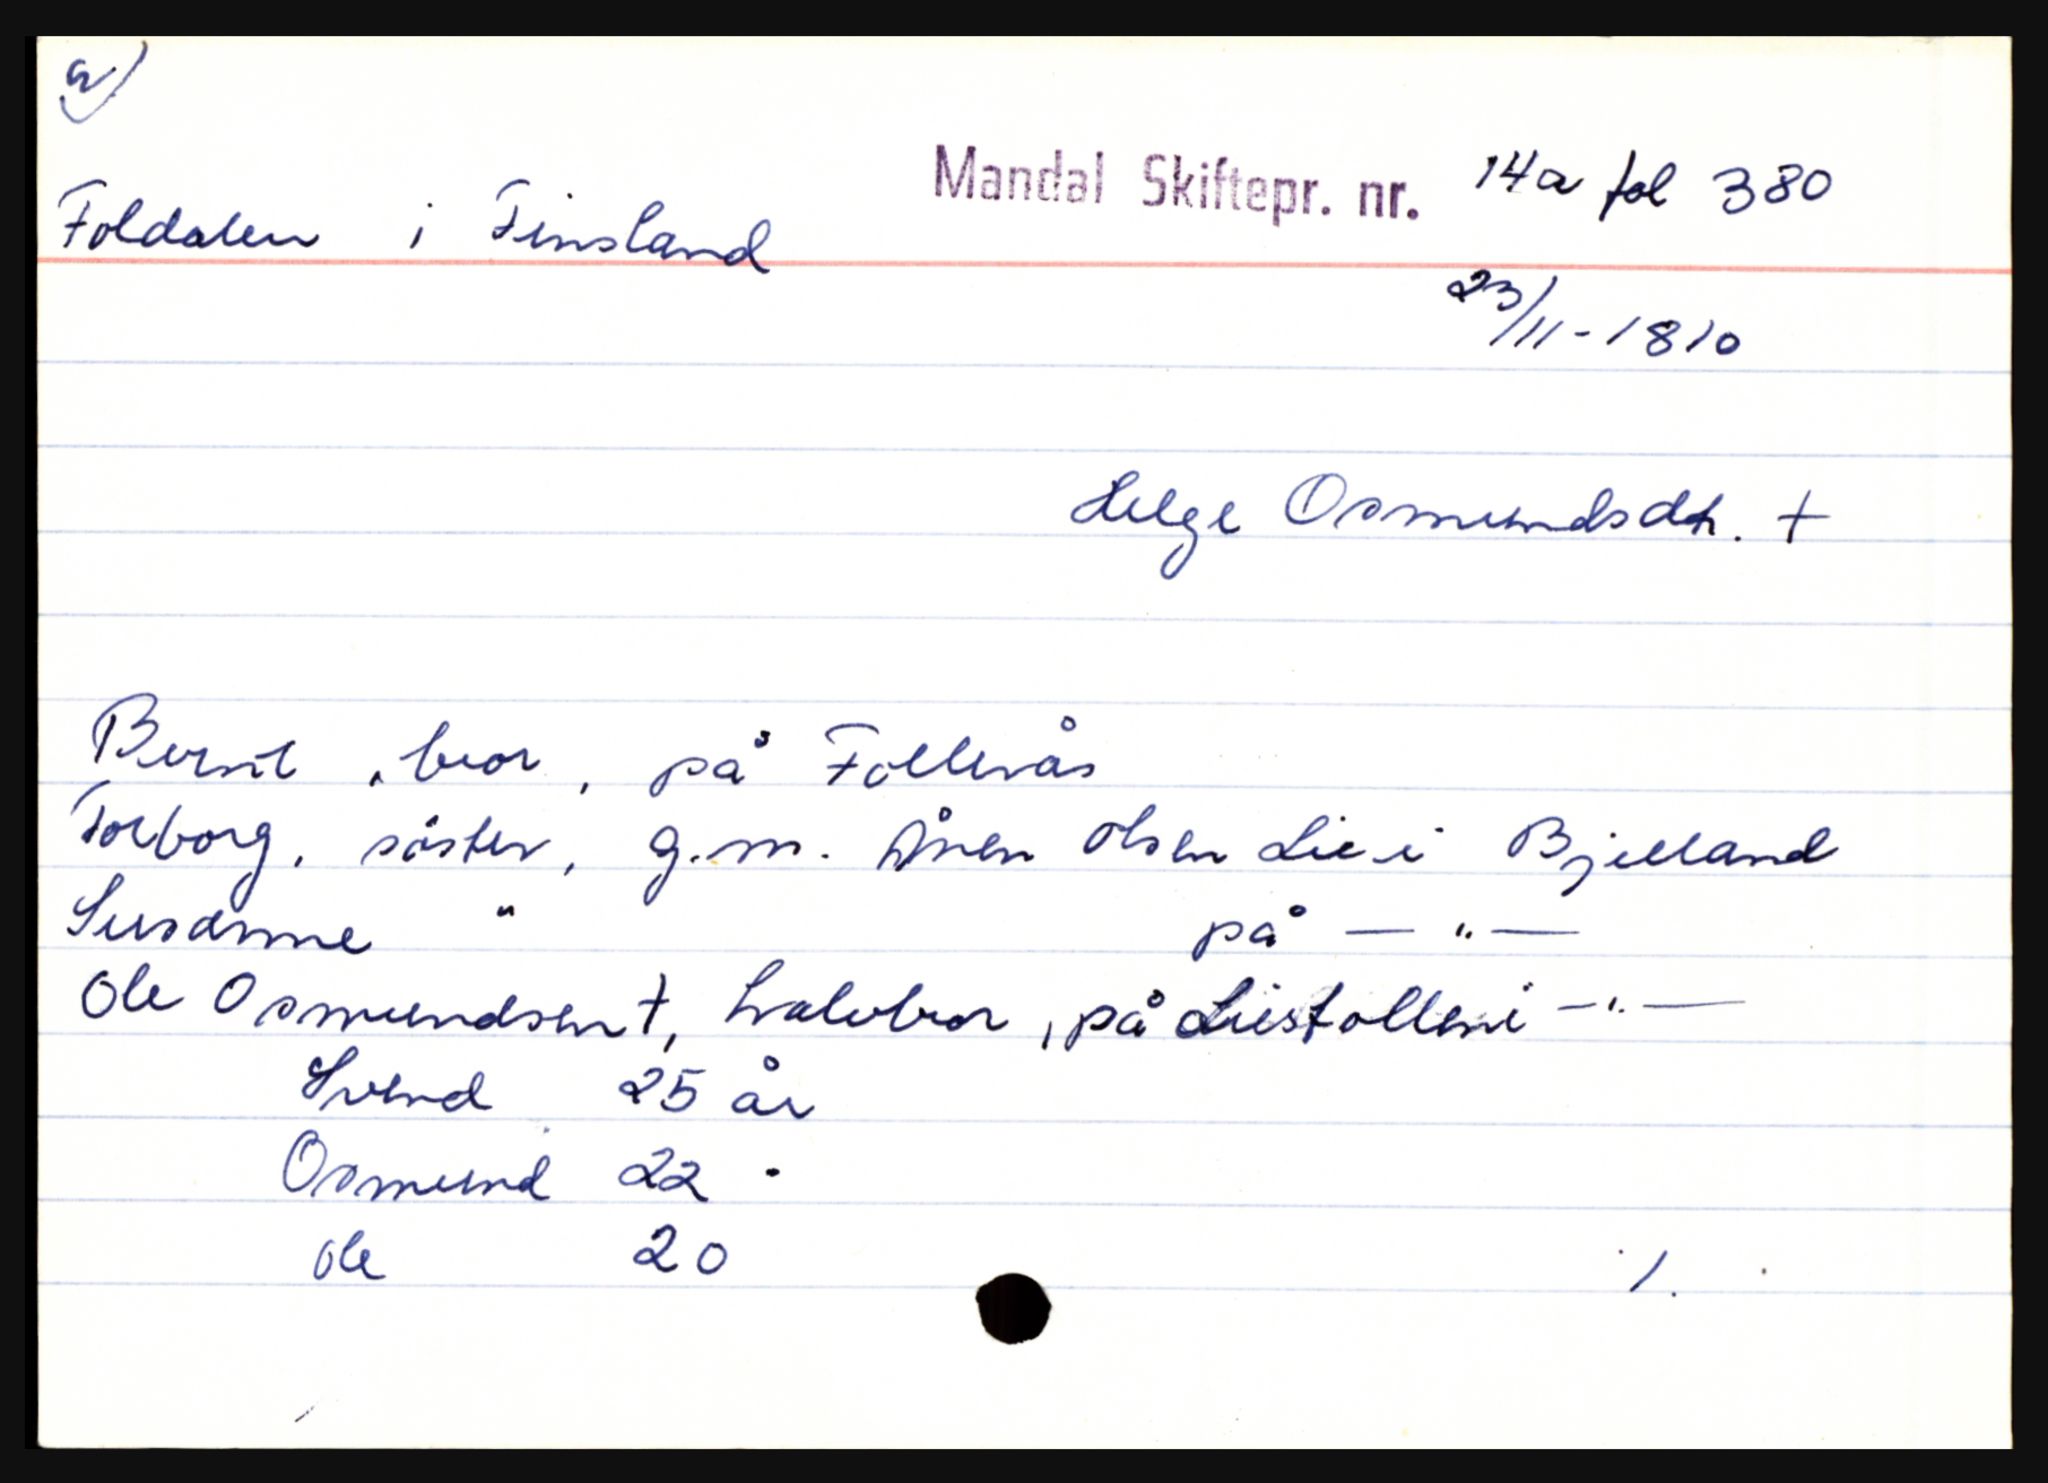 a)
Mandal Skiftepr. nr. 14a fol 380
Foldalen i Finsland
23/11-1810
Helge Osmundsdtr. +
Bernt, bror, på Follerås
Torborg, söster, g.m. Ånen Olsen Lie i Bjelland
Susanne " på — " —
Ole Osmundsen +, halvbror, på Liestollen i — " —
Svend 25 år
Osmund 22 "
Ole 20
1.